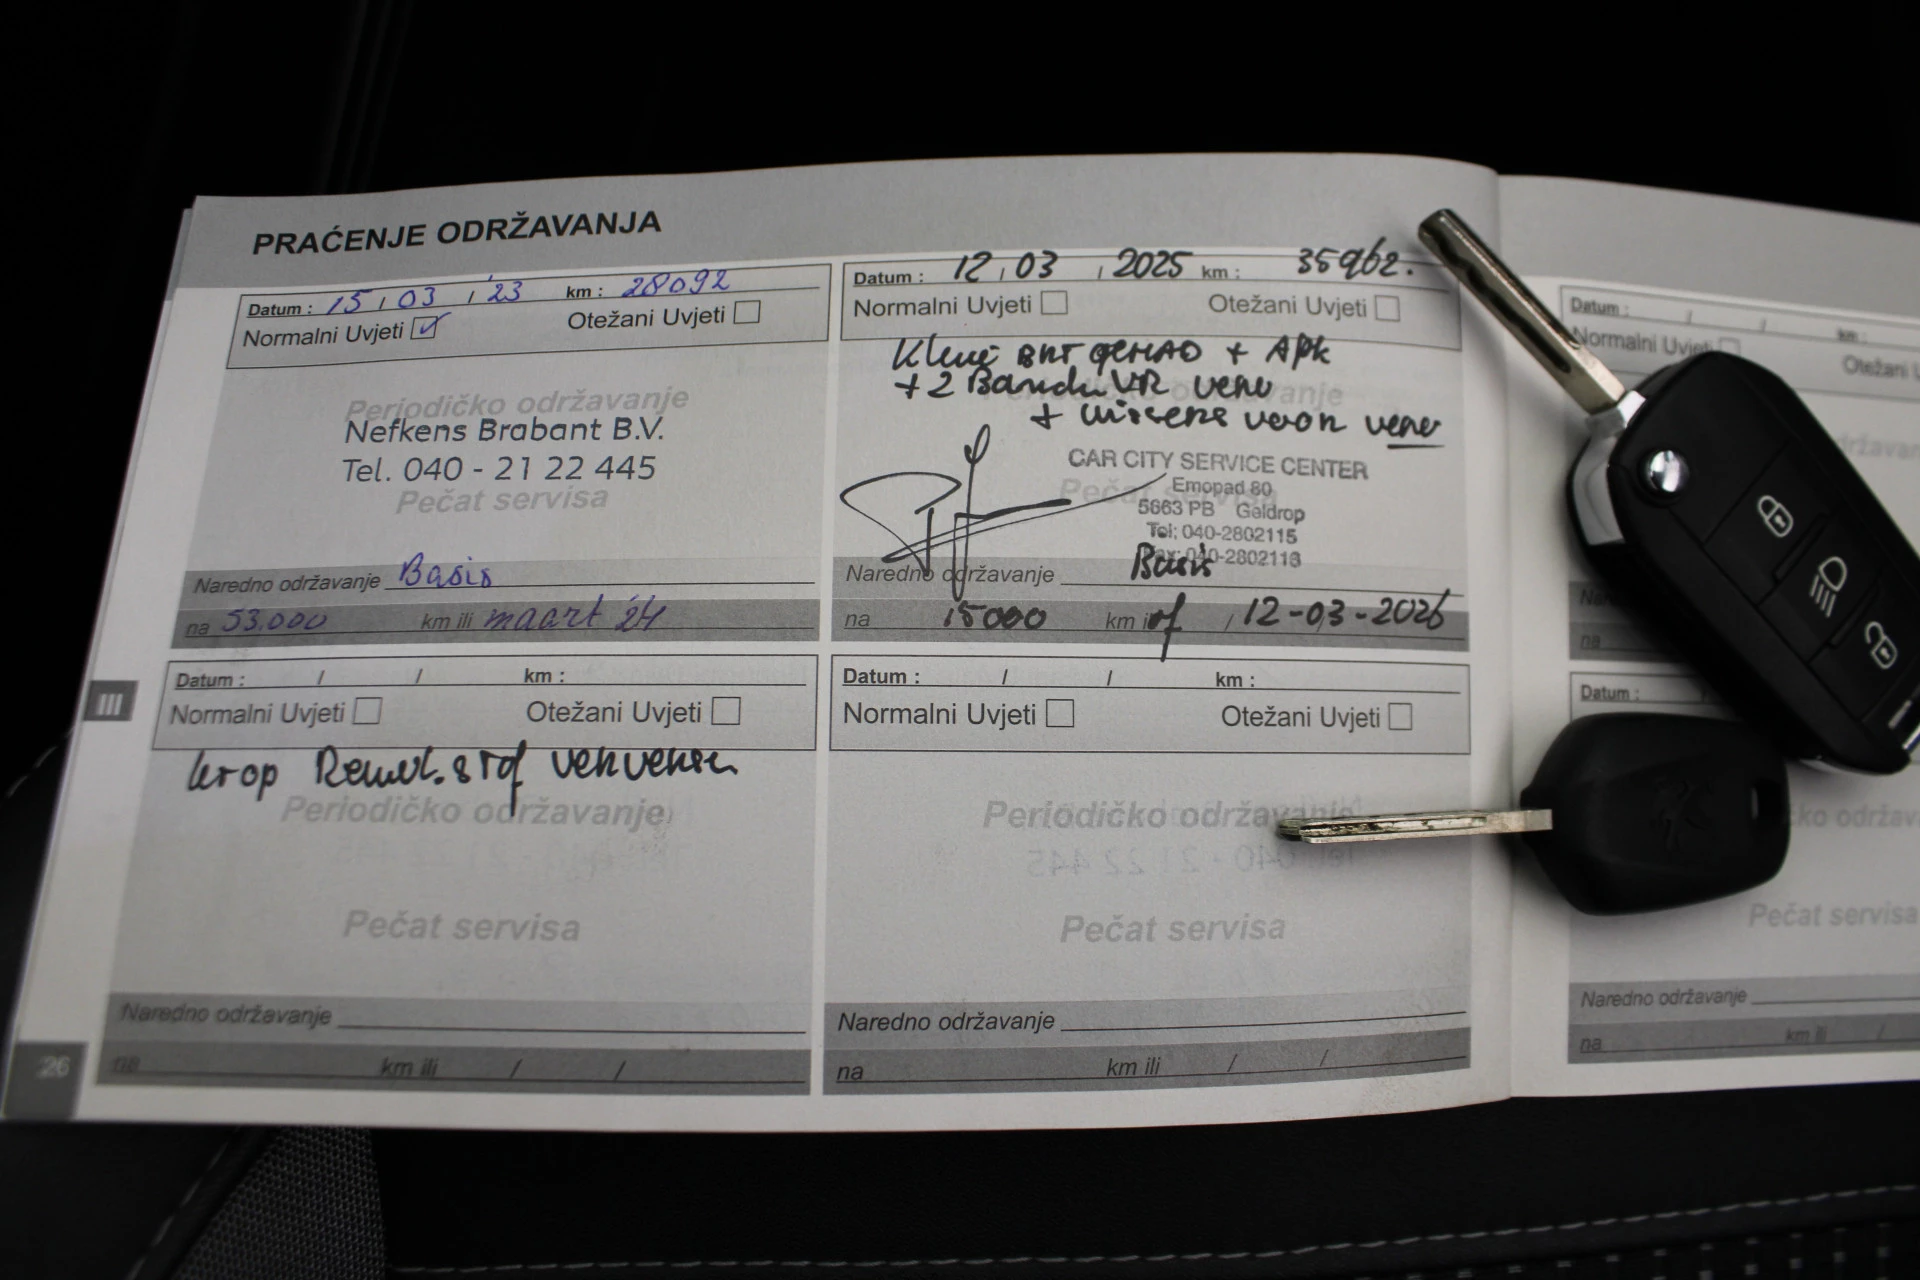 PRAĆENJE ODRŽAVANJA
Datum : 15 / 03 / '23 km : 28092
Normalni Uvjeti Otežani Uvjeti
Periodičko održavanje
Nefkens Brabant B.V.
Tel. 040 - 21 22 445
Pečat servisa
Naredno održavanje Basis
na 53.000 km ili maart '24
Datum : 12 / 03 / 2025 km : 35962.
Normalni Uvjeti Otežani Uvjeti
+ APK
+ 2
+
CAR CITY SERVICE CENTER
Emopad 80
5663 PB Geldrop
Tel: 040-2802115
Fax: 040-2802118
Naredno održavanje Basis
na 15000 km of / 12-03-2026
III
Datum : / / km :
Normalni Uvjeti Otežani Uvjeti
Periodičko održavanje
Pečat servisa
Naredno održavanje
na km ili / /
Datum : / / km :
Normalni Uvjeti Otežani Uvjeti
Periodičko održavanje
Pečat servisa
Naredno održavanje
na km ili / /
26
Datum : / / km :
Normalni Uvjeti
Datum :
Pečat servisa
Naredno održavanje
na km ili /